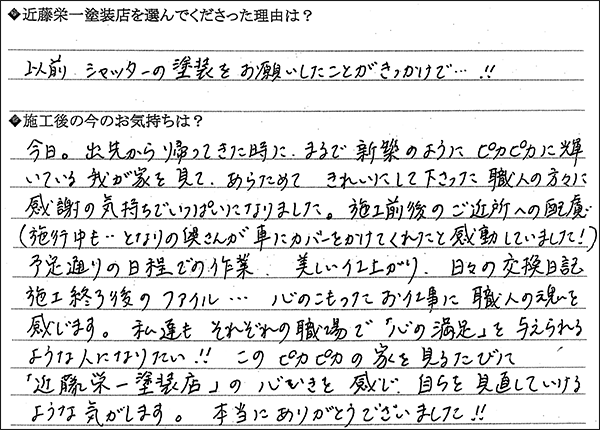 ❖近藤栄一塗装店を選んでくださった理由は？
以前 シャッターの塗装をお願いしたことがきっかけで…!!
❖施工後の今のお気持ちは？
今日。出先から帰ってきた時に、まるで新築のようにピカピカに輝
いている我が家を見て、あらためて きれいにして下さった 職人の方々に
感謝の気持ちでいっぱいになりました。施工前後のご近所への配慮
(施行中も‥となりの奥さんが車にカバーをかけてくれたと感動していました！)
予定通りの日程での作業、美しい仕上がり、日々の交換日記
施工終了後のファイル… 心のこもったお仕事に職人の魂を
感じます。私達も それぞれの職場で「心の満足」を与えられる
ような人になりたい!! この ピカピカの家を見るたびに
「近藤栄一塗装店」の心いきを感じ、自らを見直していける
ような気がします。本当にありがとうございました!!